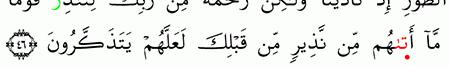 الطُّورِ إِذْ نَادَيْنَا وَلَـٰكِن رَّحْمَةً مِّن رَّبِّكَ لِتُنذِرَ قَوْمًا
مَّآ أَتَىٰهُم مِّن نَّذِيرٍ مِّن قَبْلِكَ لَعَلَّهُمْ يَتَذَكَّرُونَ ﴿٤٦﴾